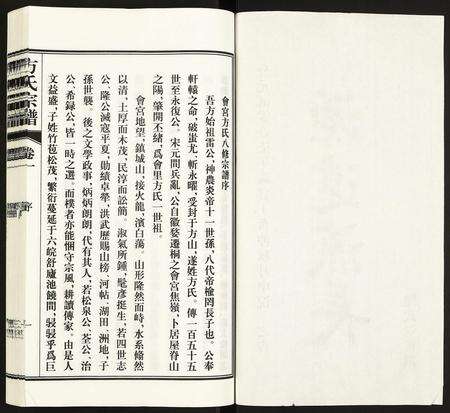 會宮方氏八修宗譜序
吾方始祖雷公，神農炎帝十一世孫，八代帝榆罔長子也。公奉
軒轅之命，破蚩尤，斬永曜，受封于方山，遂姓方氏。傳一百五十五
世至永復公。宋元間兵亂，公自徽婺遷桐之會宮焦嶺，卜居屋脊山
之陽，肇開丕緒，爲會里方氏一世祖。
會宮地望，鎮城山，接火龍，濱白蕩。山形隆然而峙，水系翛然
以清，土厚而木茂，民淳而訟簡。淑氣所鍾，髦彥挺生，若四世志
公、隆公滅寇平夏，勛績卓犖，洪武歷賜山榜、河帖、湖田、洲地，子
孫世襲。後之文學政事，炳炳朗朗，代有其人，若松泉公、荃公、治
公、希錄公，皆一時之選。而樸者亦能悃守宗風，耕讀傳家。由是人
文益盛，子姓竹苞松茂，繁衍蔓延于六皖舒廬池饒間，駸駸乎爲巨
方氏宗譜
卷一
序
一